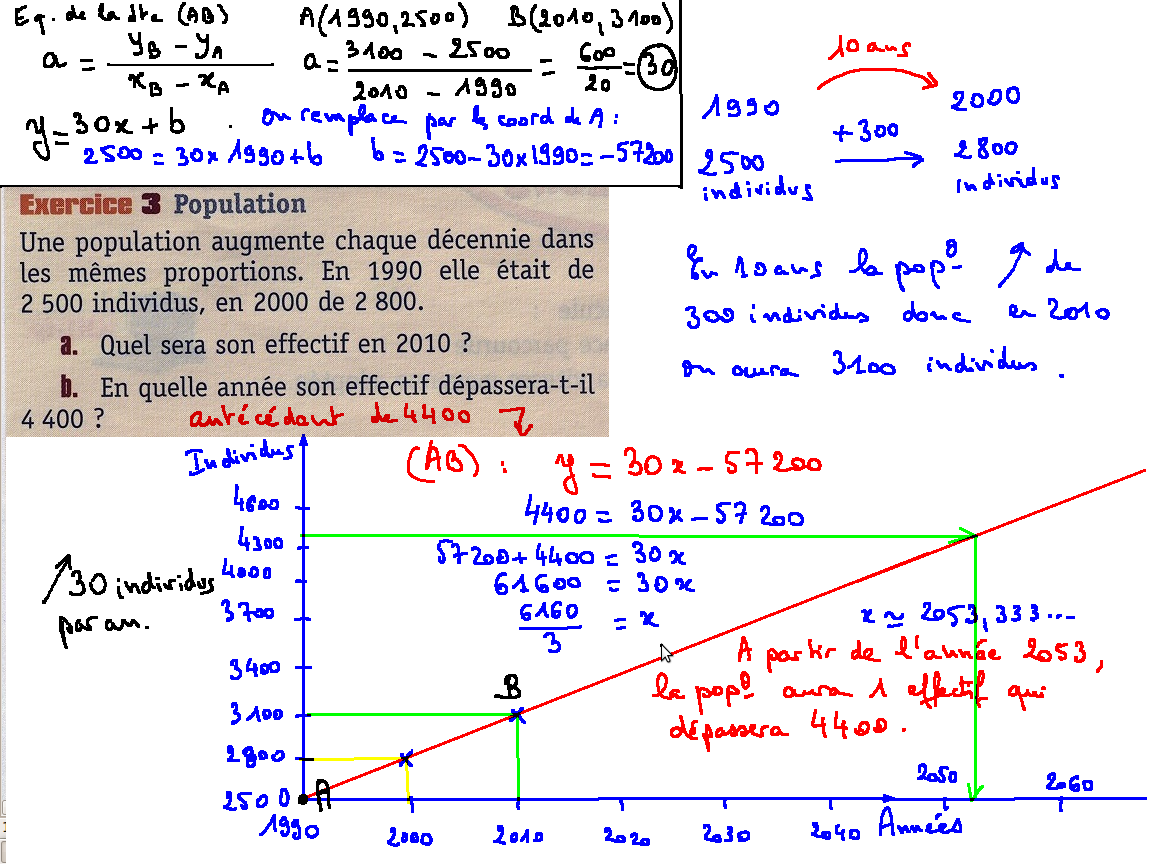 Eq. de la dte (AB) A(1990,2500) B(2010,3100)
a = (yB - yA)/(xB - xA) a = (3100 - 2500)/(2010 - 1990) = 600/20 = 30
y = 30x + b . on remplace par les coord de A :
2500 = 30 x 1990 + b b = 2500 - 30 x 1990 = -57200
10 ans
1990 2000
+300
2500 2800
individus individus
Exercice 3 Population
Une population augmente chaque décennie dans
les mêmes proportions. En 1990 elle était de
2 500 individus, en 2000 de 2 800.
a. Quel sera son effectif en 2010 ?
b. En quelle année son effectif dépassera-t-il
4 400 ?
En 10 ans la pop° ↗ de
300 individus donc en 2010
on aura 3100 individus .
antécédant de 4400
(AB) : y = 30x - 57 200
4400 = 30x - 57 200
57 200 + 4400 = 30x
61600 = 30x
6160/3 = x
x ≃ 2053,333...
A partir de l'année 2053,
la pop° aura 1 effectif qui
dépassera 4400 .
↗ 30 individus
par an.
Individus
4600
4300
4000
3700
3400
3100
2800
2500
0
A
B
1990 2000 2010 2020 2030 2040 2050 2060
Années